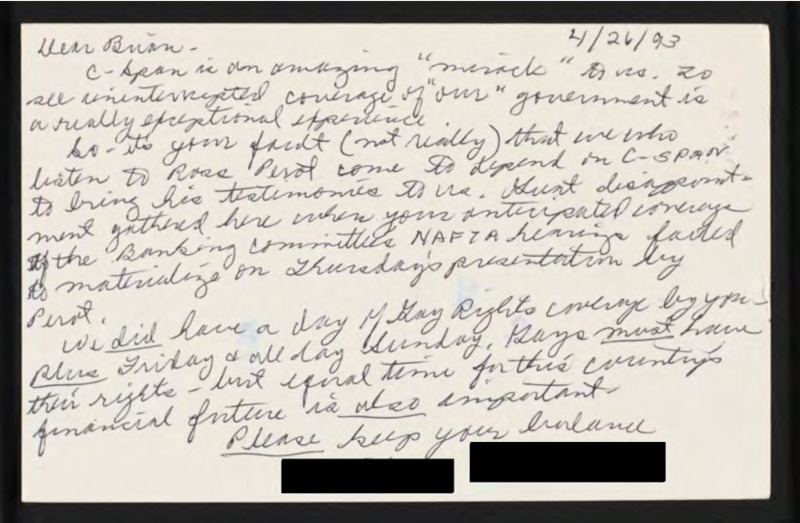 4/26/93
Dear Brian -
C-Span is an amazing "miracle" to us. To
see uninterrupted coverage of "our" government is
a really exceptional experience.
So - its your fault (not really) that we who
listen to Ross Perot come to depend on C-SPAN
to bring his testimonies to us. Great disappoint-
ment gathered here when your anticipated coverage
of the Banking committee's NAFTA hearings failed
to materialize on Thursday's presentation by
Perot.
We did have a day of Gay Rights coverage by you
plus Friday & all day Sunday. Gays must have
their rights - but equal time for this country's
financial future is also important.
Please keep your balance